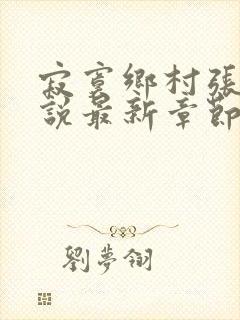 寂寞鄉村張
說最新章節
劉夢翎